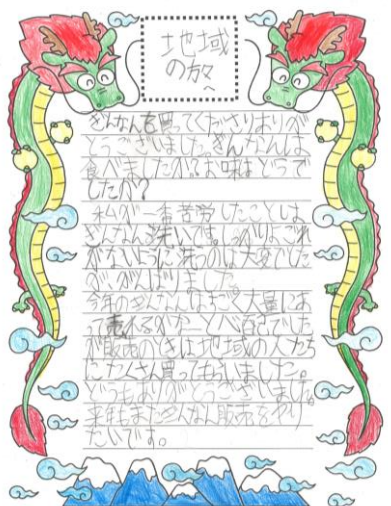 地域
の方々
へ
ぎんなんを買ってくださりありが
とうございました。ぎんなんは
食べましたか?お味はどうで
したか?
私が一番苦労したことは
ぎんなん洗いです。しっかりよごれ
がないように洗うのは大変でした
が、がんばりました。
今年のぎんなんは
って売れるか
が販売のときは地域の人たち
にたくさん買ってもらいました。
どうもありがとうございました。
来年もまたぎんなん販売をやり
たいです。